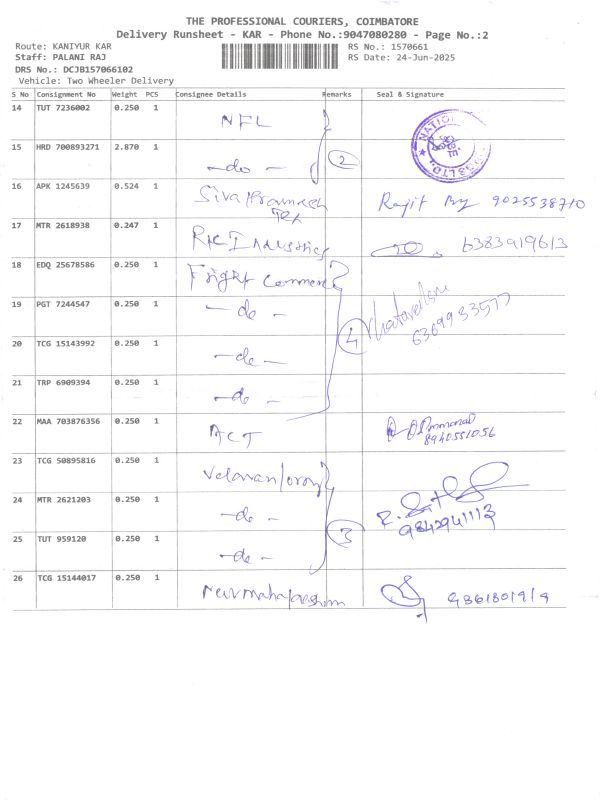 THE PROFESSIONAL COURIERS, COIMBATORE
Delivery Runsheet - KAR - Phone No.:9047080280 - Page No.:2
Route: KANIYUR KAR RS No.: 1570661
Staff: PALANI RAJ RS Date: 24-Jun-2025
DRS No.: DCJB157066102
Vehicle: Two Wheeler Delivery
S No Consignment No Weight PCS Consignee Details Remarks Seal & Signature
14 TUT 7236002 0.250 1 NFL
15 HRD 700893271 2.870 1 -do- 2
16 APK 1245639 0.524 1 Siva Tex 9025538710
17 MTR 2618938 0.247 1 Industries 6383919613
18 EDQ 25678586 0.250 1 Fright
19 PGT 7244547 0.250 1 -do- 6369933577
20 TCG 15143992 0.250 1 -do- 4
21 TRP 6909394 0.250 1 -do-
22 MAA 703876356 0.250 1 ACT 8940551056
23 TCG 50895816 0.250 1 Velavan
24 MTR 2621203 0.250 1 -do- 9842941113
25 TUT 959120 0.250 1 -do- 3
26 TCG 15144017 0.250 1